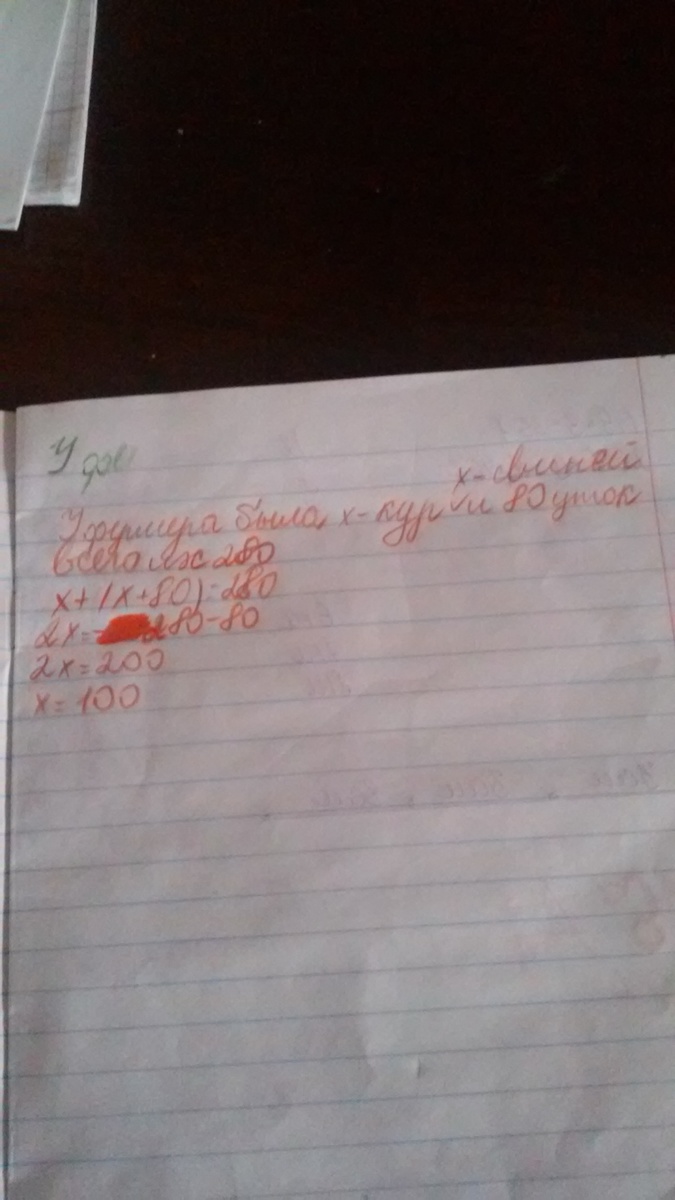 У
x-свиней
У фермера было x-кур и 80 уток
всего их 280
x+(x+80)=280
2x=280-80
2x=200
x=100